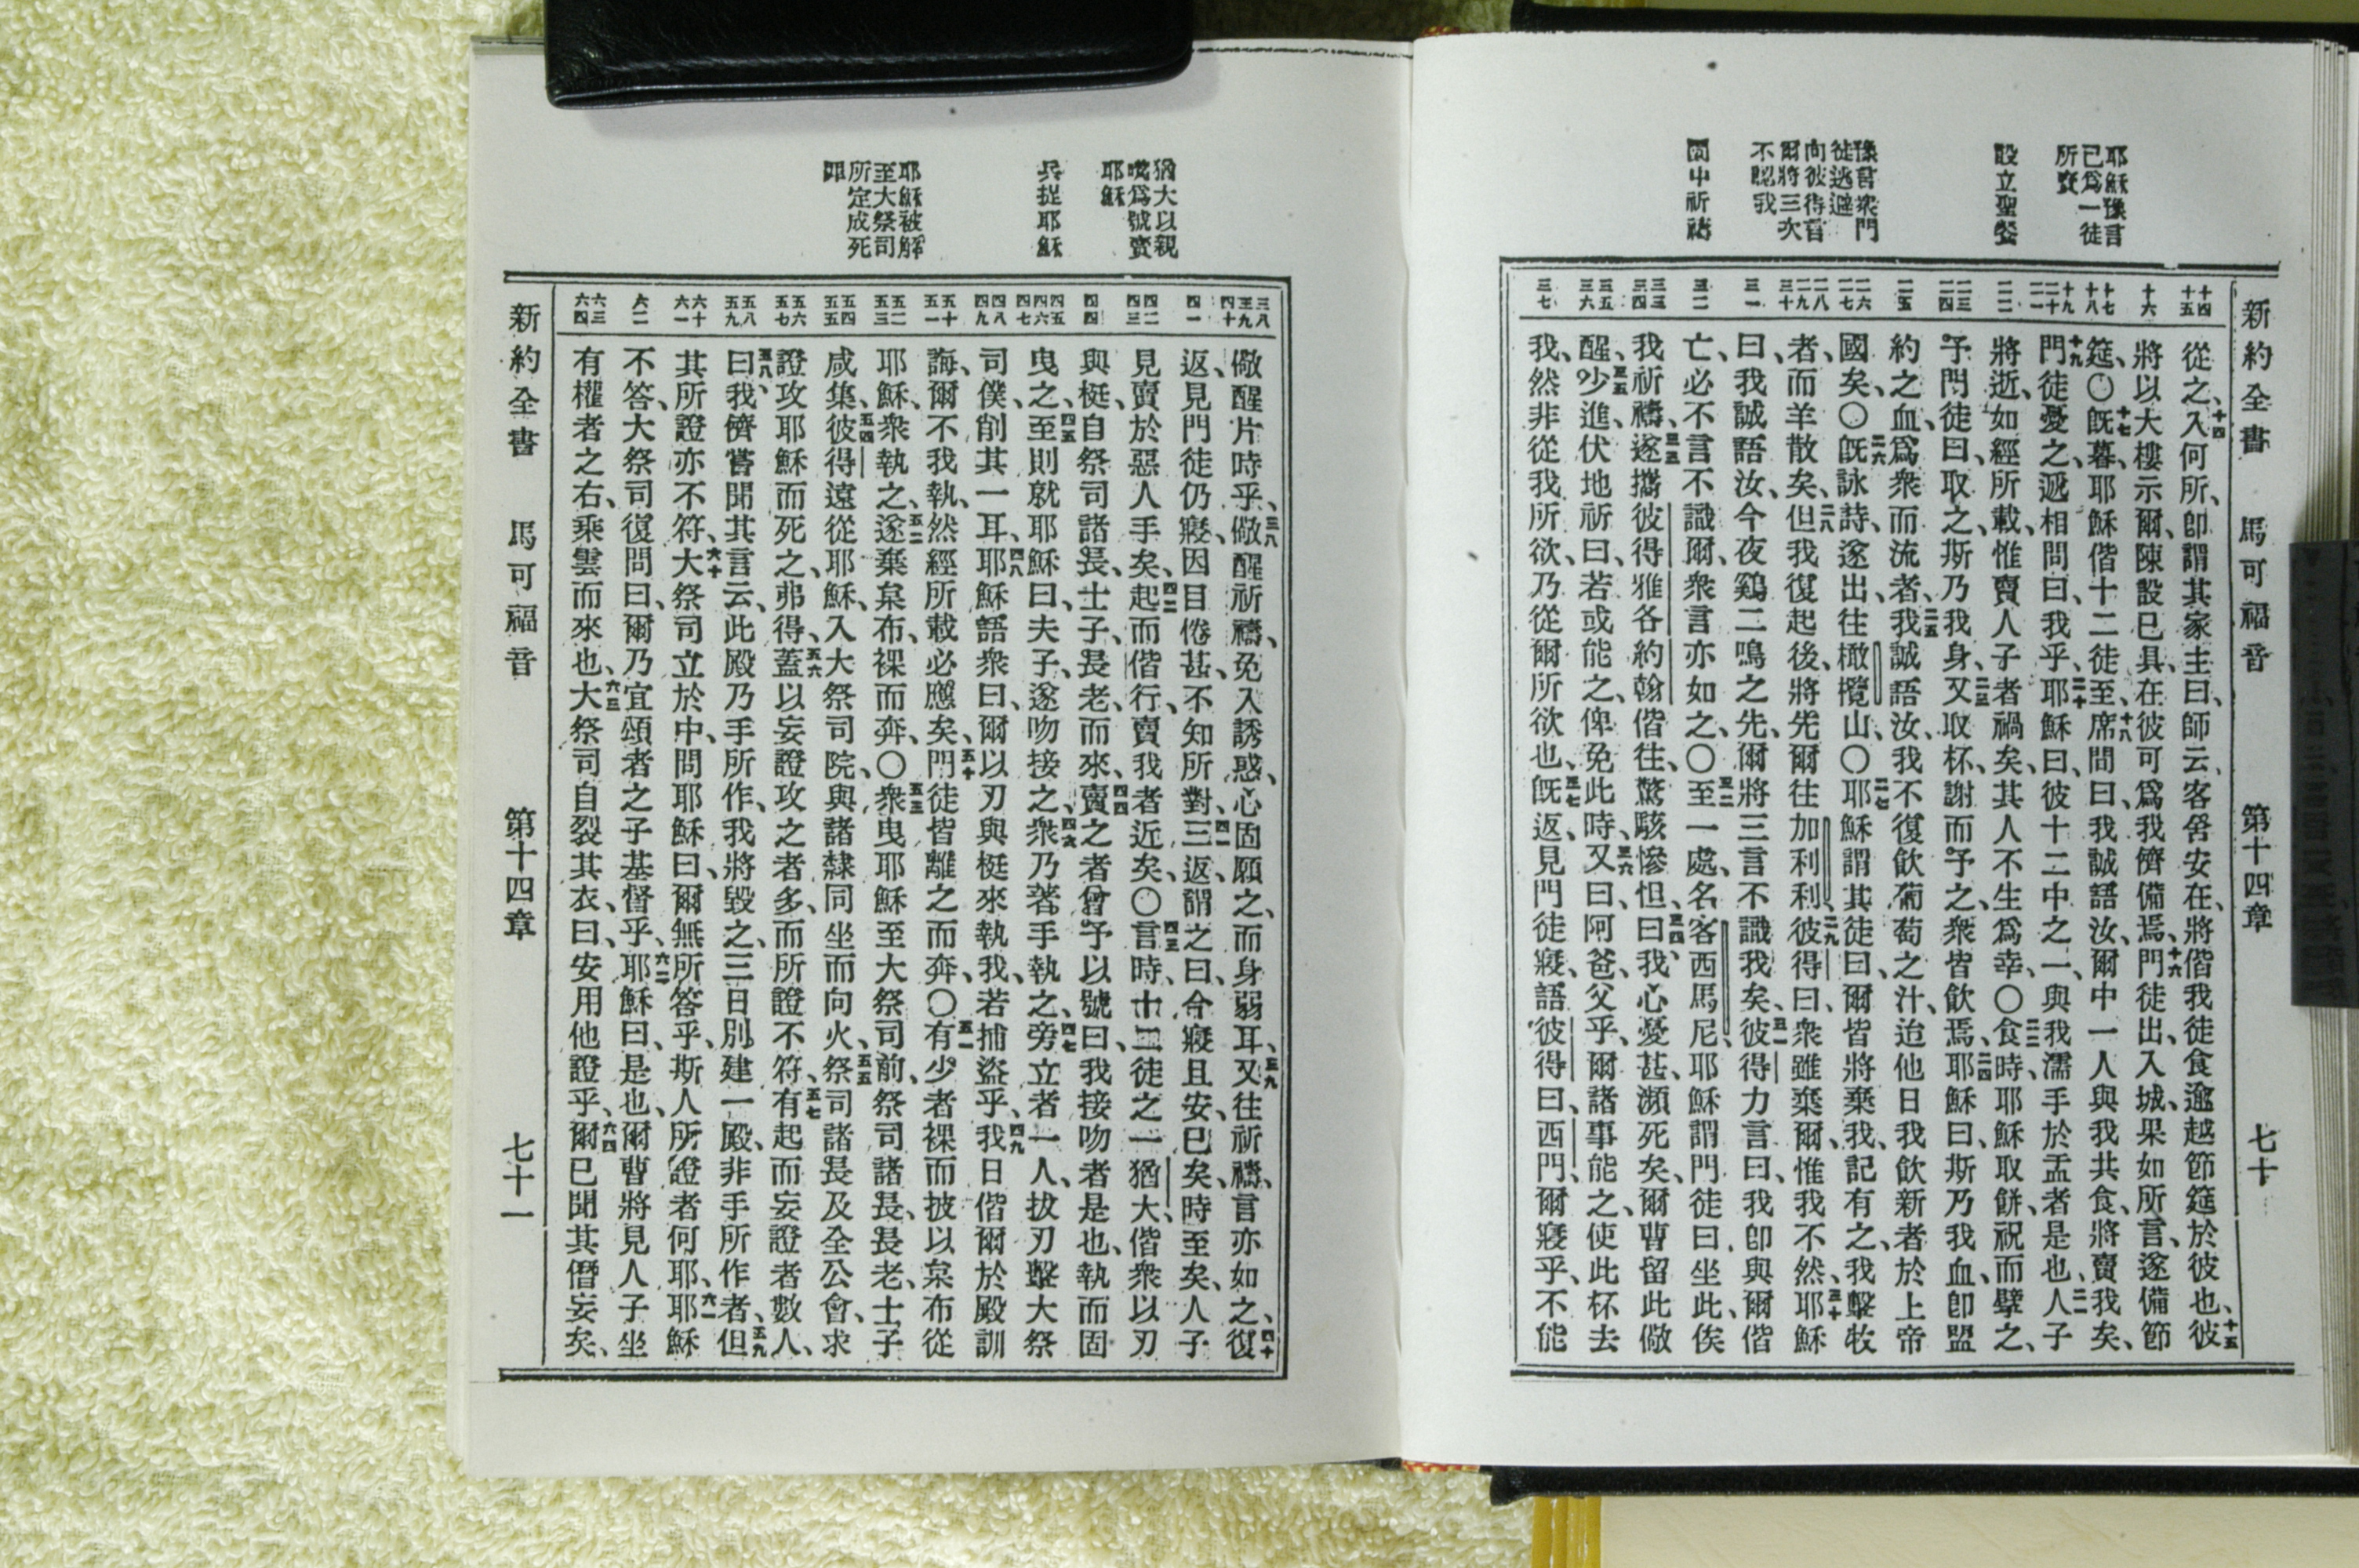 耶穌豫言
已爲一徒
所賣
設立聖餐
豫言衆門
徒逃避
向彼得言
爾將三次
不認我
囿中祈禱
新約全書 馬可福音 第十四章 七十
十四
十五
十六
十七
十八
十九
二十
二一
二二
二三
二四
二五
二六
二七
二八
二九
三十
三一
三二
三三
三四
三五
三六
三七
從之、十四入何所、卽謂其家主曰、師云、客舍安在、將偕我徒食逾越節筵於彼也、十五彼
將以大樓示爾、陳設已具、在彼可爲我儕備焉、十六門徒出、入城、果如所言、遂備節
筵、〇十七旣暮、耶穌偕十二徒至、十八席間曰、我誠語汝、爾中一人與我共食、將賣我矣、
十九門徒憂之、遞相問曰、我乎、二十耶穌曰、彼十二中之一、與我濡手於盂者是也、二一人子
將逝、如經所載、惟賣人子者禍矣、其人不生爲幸、〇二二食時、耶穌取餅、祝而擘之、
予門徒曰、取之、斯乃我身、二三又取杯、謝而予之、衆皆飲焉、二四耶穌曰、斯乃我血、卽盟
約之血、爲衆而流者、二五我誠語汝、我不復飲葡萄之汁、迨他日我飲新者於上帝
國矣、〇二六旣詠詩、遂出、往橄欖山、〇二七耶穌謂其徒曰、爾皆將棄我、記有之、我擊牧
者、而羊散矣、二八但我復起後、將先爾往加利利、二九彼得曰、衆雖棄爾、惟我不然、三十耶穌
曰、我誠語汝、今夜鷄二鳴之先、爾將三言不識我矣、三一彼得力言曰、我卽與爾偕
亡、必不言不識爾、衆言亦如之、〇三二至一處、名客西馬尼、耶穌謂門徒曰、坐此、俟
我祈禱、三三遂攜彼得雅各約翰偕往、驚駭慘怛、三四曰、我心憂甚、瀕死矣、爾曹留此儆
醒、三五少進、伏地祈曰、若或能之、俾免此時、三六又曰、阿爸、父乎、爾諸事能之、使此杯去
我、然非從我所欲、乃從爾所欲也、三七旣返、見門徒寢、語彼得曰、西門、爾寢乎、不能
猶大以親
嘴爲號賣
耶穌
兵捉耶穌
耶穌被解
至大祭司
所定成死
罪
三八
三九
四十
四一
四二
四三
四四
四五
四六
四七
四八
四九
五十
五一
五二
五三
五四
五五
五六
五七
五八
五九
六十
六一
六二
六三
六四
儆醒片時乎、三八儆醒祈禱、免入誘惑、心固願之、而身弱耳、三九又往祈禱、言亦如之、四十復
返、見門徒仍寢、因目倦甚、不知所對、四一三返、謂之曰、今寢且安、已矣、時至矣、人子
見賣於惡人手矣、四二起而偕行、賣我者近矣、〇四三言時、十二徒之一猶大、偕衆以刃
與梃、自祭司諸長、士子、長老而來、四四賣之者曾予以號曰、我接吻者是也、執而固
曳之、四五至則就耶穌曰、夫子、遂吻接之、四六衆乃著手執之、四七旁立者一人、拔刃擊大祭
司僕、削其一耳、四八耶穌語衆曰、爾以刃與梃來執我、若捕盜乎、四九我日偕爾於殿訓
誨、爾不我執、然經所載必應矣、五十門徒皆離之而奔、〇五一有少者裸而披以枲布從
耶穌、衆執之、五二遂棄枲布、裸而奔、〇五三衆曳耶穌至大祭司前、祭司諸長、長老、士子
咸集、五四彼得遠從耶穌、入大祭司院、與諸隸同坐而向火、五五祭司諸長及全公會、求
證攻耶穌而死之、弗得、五六蓋以妄證攻之者多、而所證不符、五七有起而妄證者數人、
五八曰、我儕嘗聞其言云、此殿乃手所作、我將毀之、三日別建一殿、非手所作者、五九但
其所證亦不符、六十大祭司立於中、問耶穌曰、爾無所答乎、斯人所證者何耶、六一耶穌
不答、大祭司復問曰、爾乃宜頌者之子基督乎、六二耶穌曰、是也、爾曹將見人子坐
有權者之右、乘雲而來也、六三大祭司自裂其衣、曰、安用他證乎、六四爾已聞其僭妄矣、
新約全書 馬可福音 第十四章 七十一